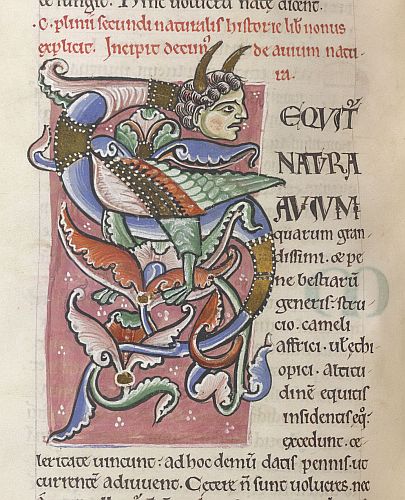 Hinc uolucrū natę dicent.
C. plinii secundi naturalis historie lib nonus
explicit. Incipit decimꝰ de auium natu
ra.
SEQVIT᷑
NATVRA
AVIVM
quarum gran
dissimi. & pe
ne bestiarū
generis. stru
cio cameli
affrici. ul ethi
opici. altitu
dinē equitis
insidentis eq̇.
excedunt. ce
leritate uincunt. ad hoc demū datis pennis. ut
currentē adiuuent. Cetere ñ sunt uolucres. nec